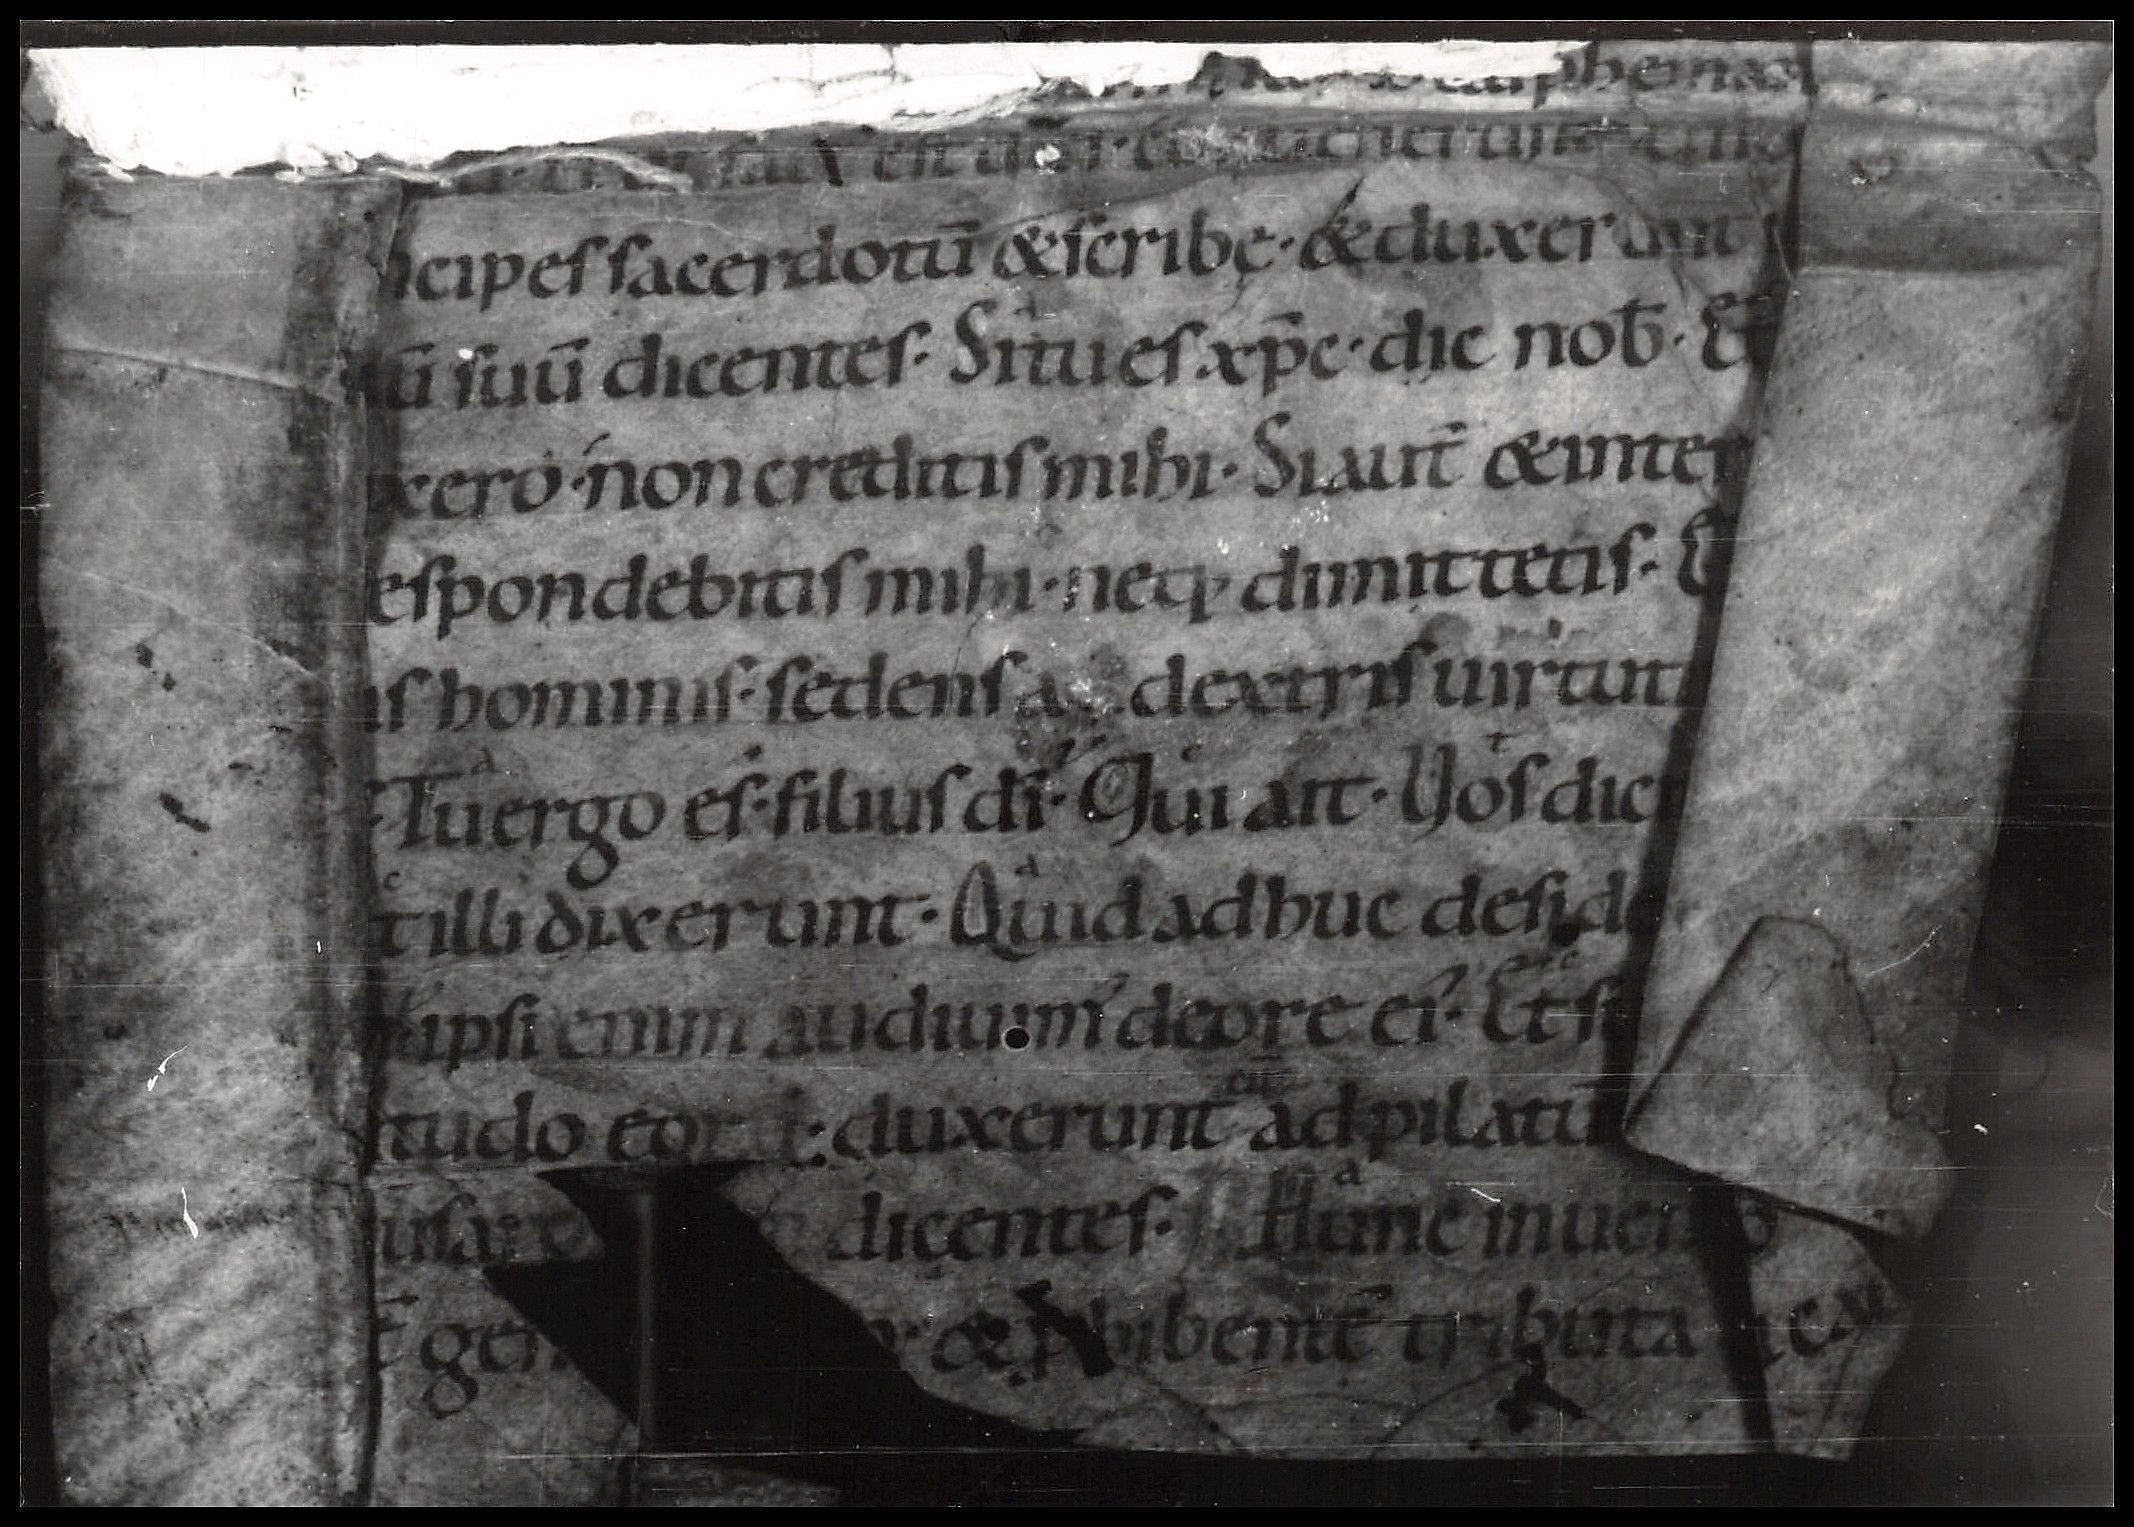 blasphemantes
fac est dies conuenerunt
ncipes sacerdotū & scribe · & duxerunt
ū suū dicentes · Si tu es xp̄c · dic nob̄ · Et
xero · non creditis mihi · Si aut̄ & inter
espondebitis mihi · neq; dimittetis · E
us hominis · sedens a dextris uirtut
Tu ergo es · filius dī · Qui ait · Vos dici
t illi dixerunt · Quid adhuc deside
ipsi enim audiuim' de ore ei' · Et s
titudo eoꝝ · duxerunt eū ad pilatū
usare dicentes · Hunc inueni
t̄ gen & phibentē tributa